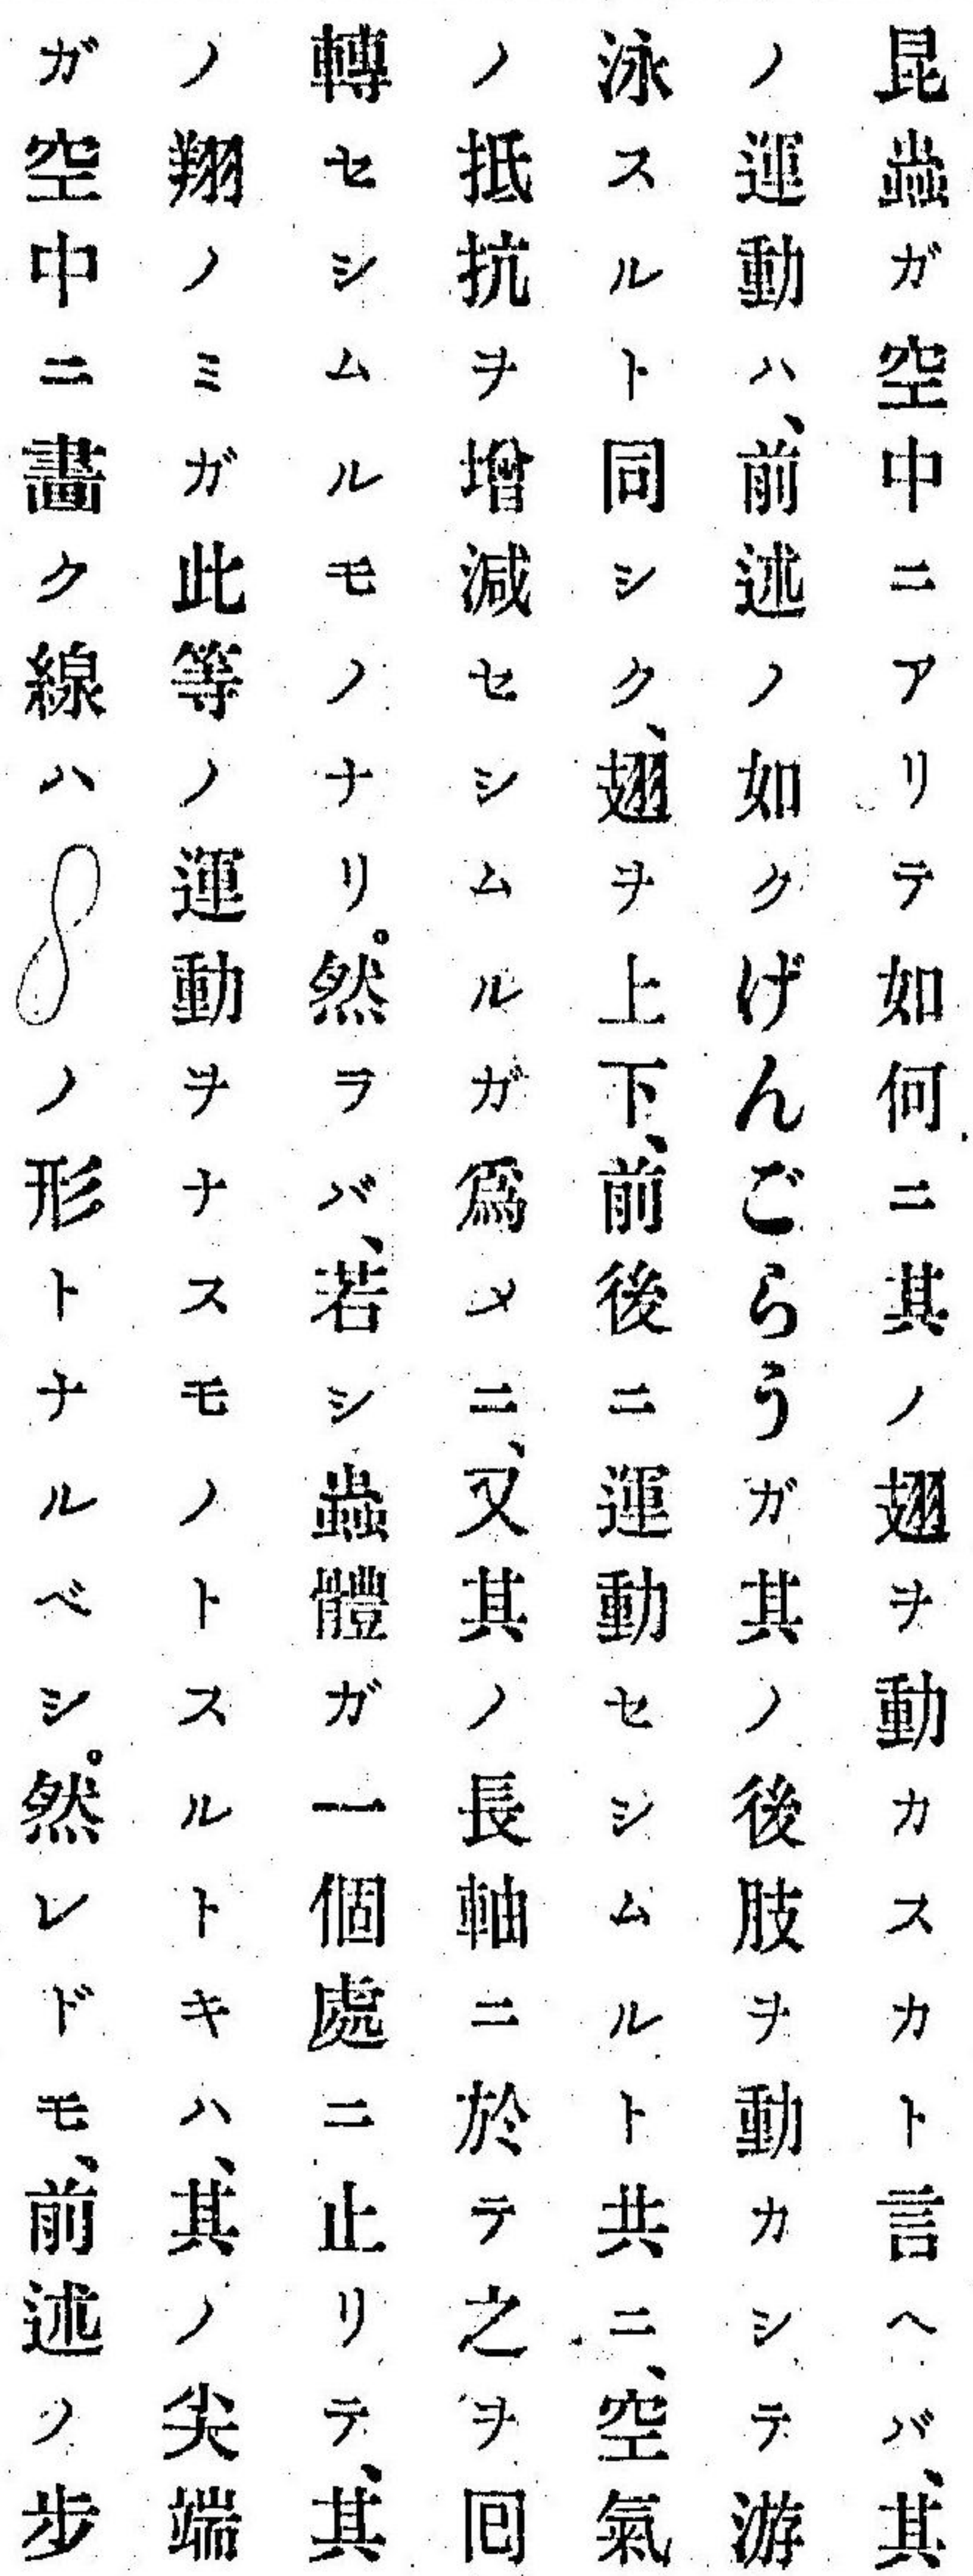 昆蟲ガ空中ニアリテ如何ニ其ノ翅ヲ動カスカト言ヘバ、其
ノ運動ハ、前述ノ如クげんごらうガ其ノ後肢ヲ動カシテ游
泳スルト同シク、翅ヲ上下、前後ニ運動セシムルト共ニ、空氣
ノ抵抗ヲ增減セシムルガ爲メニ、又其ノ長軸ニ於テ之ヲ囘
轉セシムルモノナリ。然ラバ、若シ蟲體ガ一個處ニ止リテ、其
ノ翔ノミガ此等ノ運動ヲナスモノトスルトキハ、其ノ尖端
ガ空中ニ畫ク線ハ8ノ形トナルベシ。然レドモ、前述ノ步